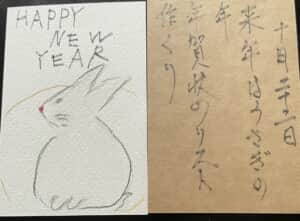 HAPPY
NEW
YEAR
十月二十二日
来年はうさぎの
年
年賀状のリスト
作くり